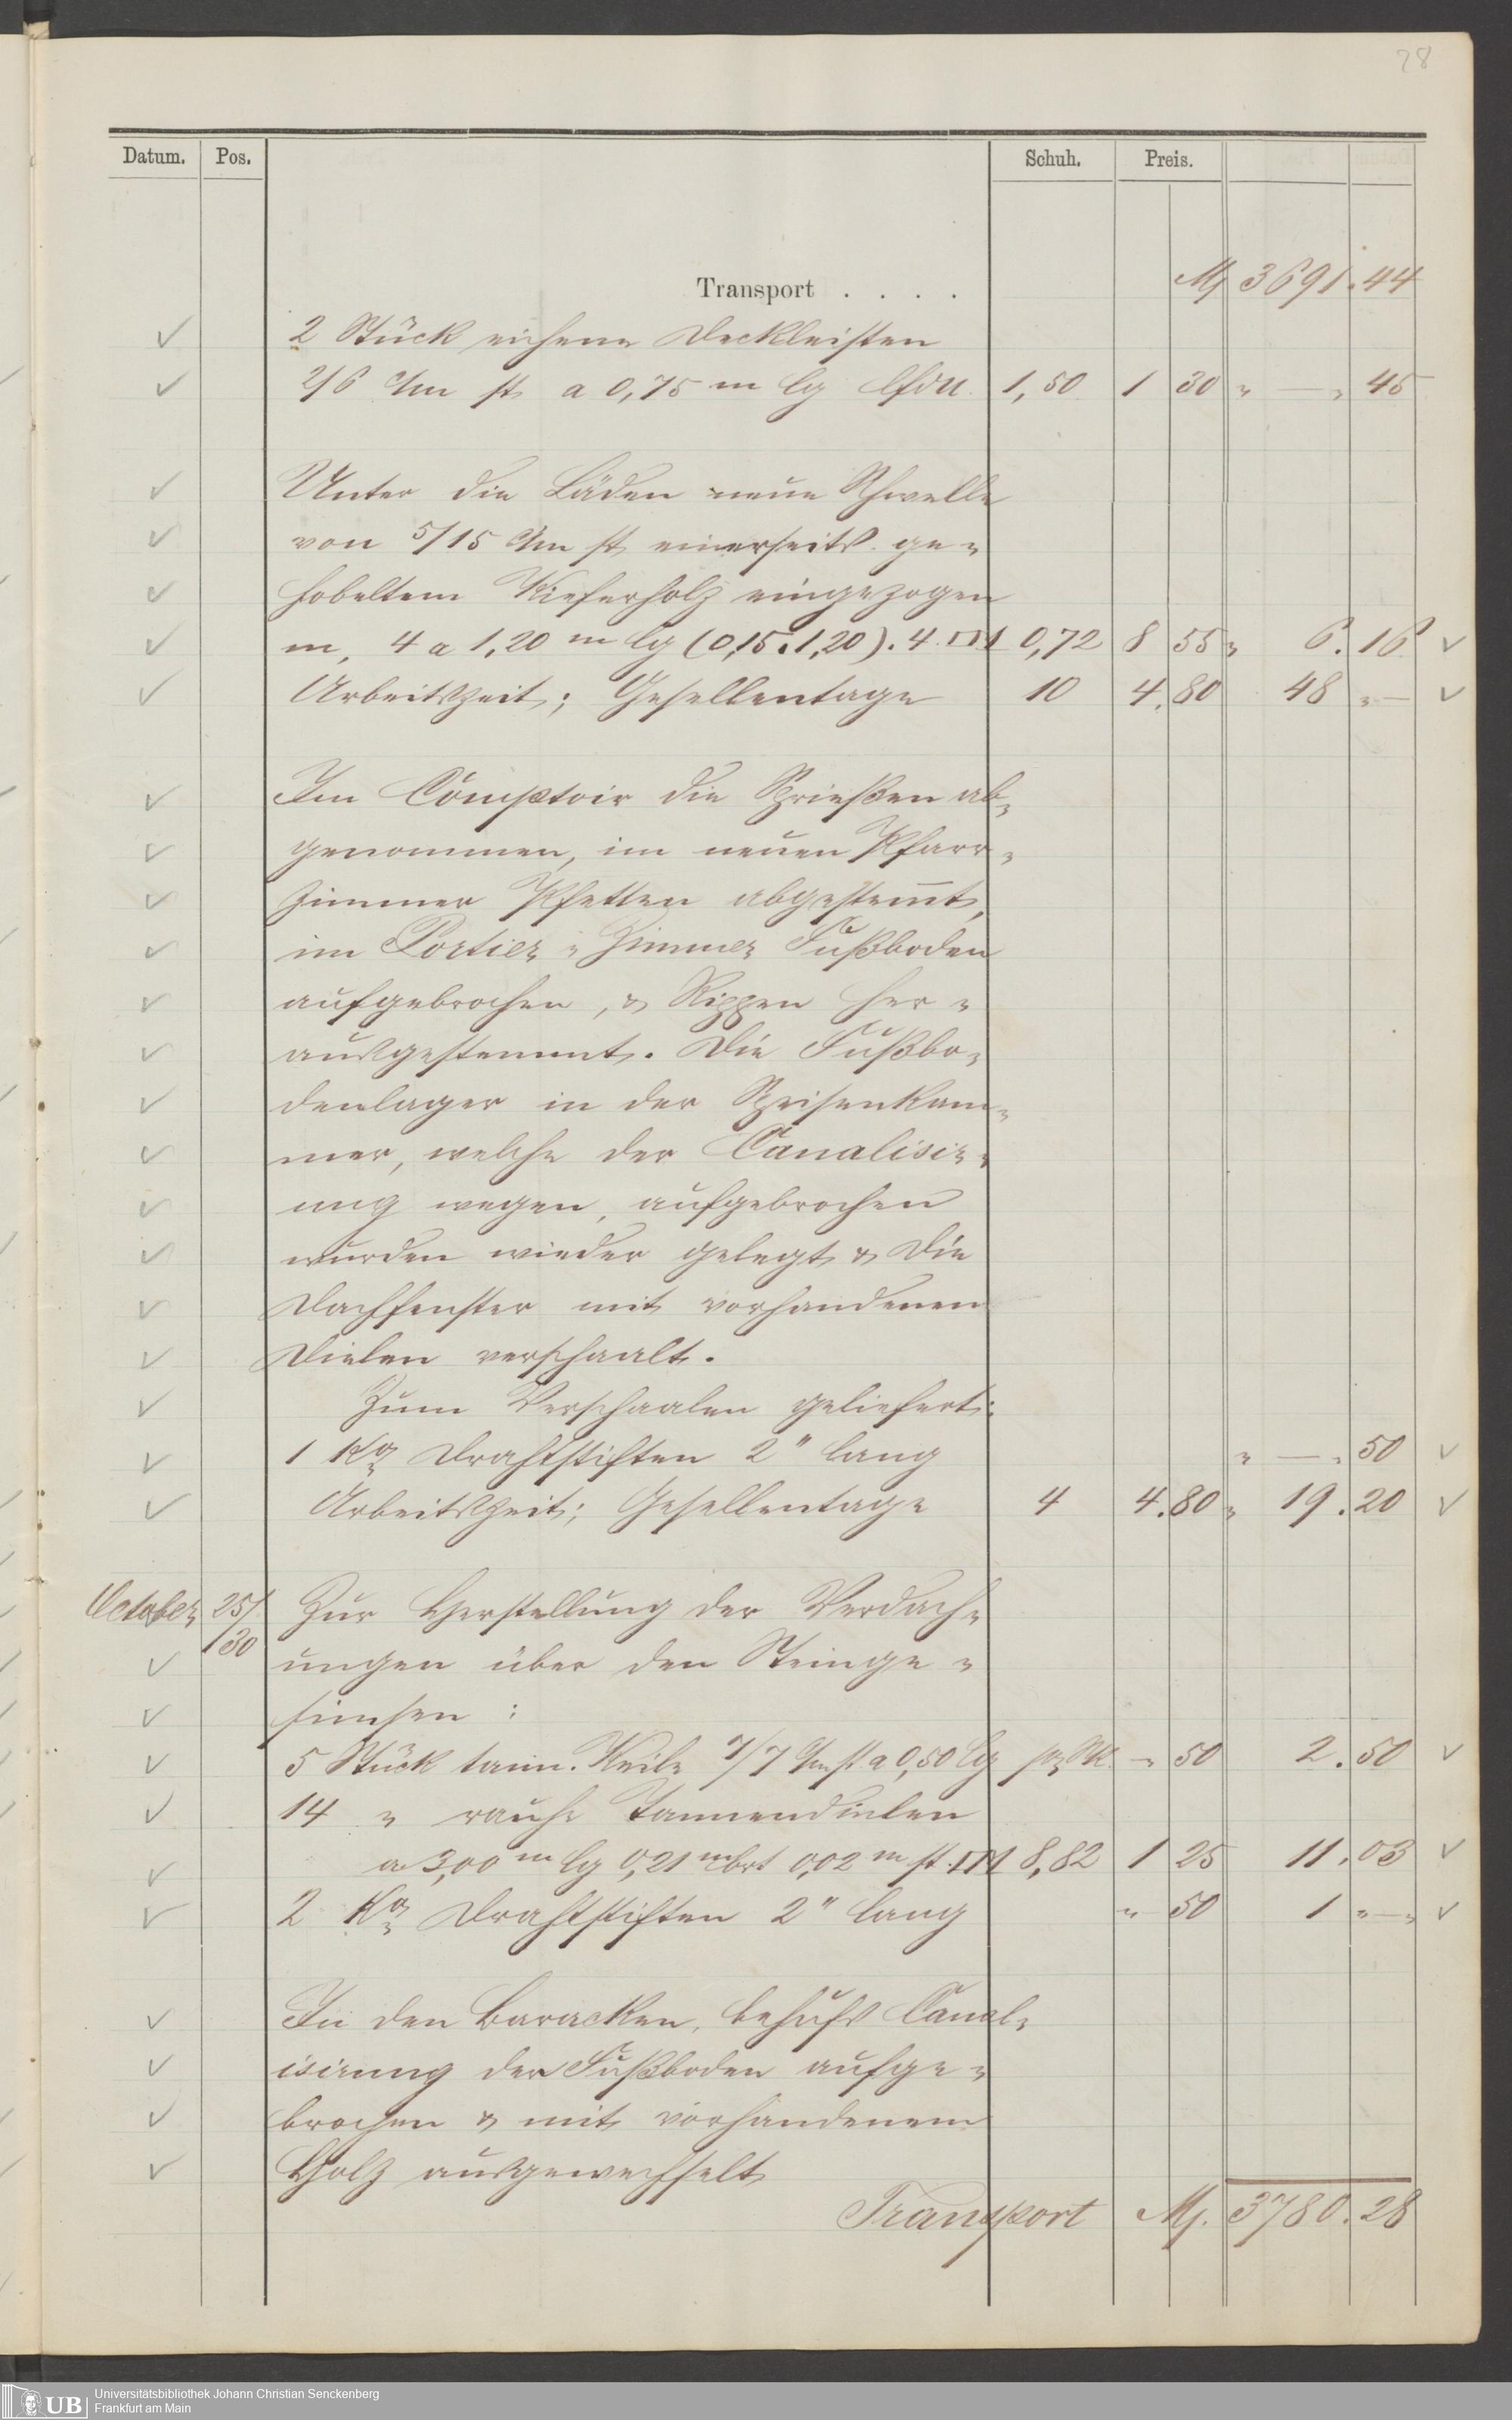 28
Datum. Pos. Schuh. Preis.
Transport . . . . M 3691.44
2 Stück eichene Deckleisten
2/6 c/m st a 0,75 m lg lfdM. 1,50 1 30 " — " 45
Unter die Läden neue Schwelle
von 5/15 c/m st einerseits ge-
hobeltem Kieferholz eingezogen
m, 4 a 1,20 m lg (0,15.1,20).4. □M 0,72 8 55 " 6.16
Arbeitszeit; Gesellentage 10 4.80 48 " —
Im Comptoir die Sprießen ab-
genommen, im neuen Pfarr-
zimmer Pfetten abgestem̅t,
im Portier-Zimmer Fußboden
aufgebrochen, & Rippen her-
ausgestemmt. Die Fußbo-
denlager in der Speisenkam-
mer, welche der Canalisir-
ung wegen, aufgebrochen
wurden wieder gelegt & die
Dachfenster mit vorhandenen
Dielen verschaalt.
Zum Verschaalen geliefert:
1 Ko Drahtstiften 2" lang " — " 50
Arbeitszeit; Gesellentage 4 4.80 " 19.20
October 25/30 Zur Herstellung der Verdach-
ungen über den Steinge-
simsen:
5 Stück tann. Keile 7/7 c/m st a 0,50 lg pr St. " 50 2.50
14 " rauhe Tannendielen
a 3,00 m lg 0,21 m brt 0,02 m st. □M 8,82 1 25 11.03
2 Ko Drahtstiften 2" lang " 50 1 " — "
In den Baracken, behufs Canal-
isirung der Fußboden aufge-
brochen & mit vorhandenem
Holz ausgewechselt
Transport M. 3780.28
UB Universitätsbibliothek Johann Christian Senckenberg
Frankfurt am Main